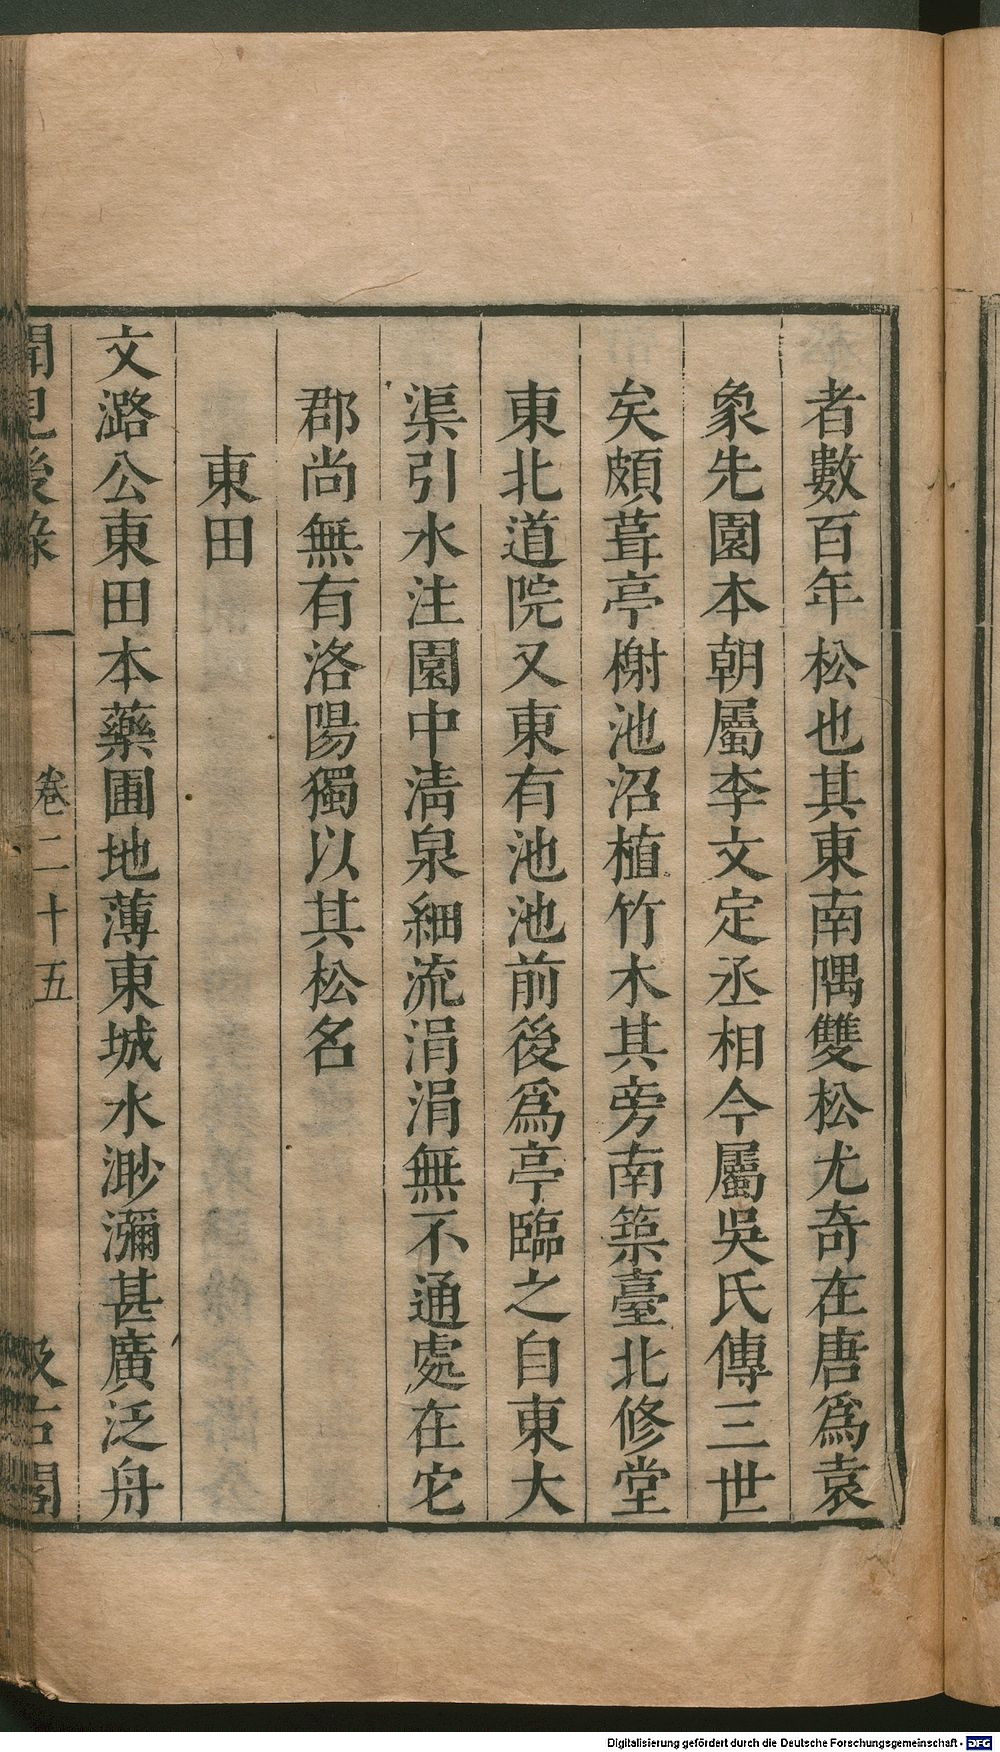 者數百年松也其東南隅雙松尤奇在唐爲袁
象先園本朝屬李文定丞相今屬吳氏傳三世
矣頗葺亭榭池沼植竹木其旁南築臺北修堂
東北道院又東有池池前後爲亭臨之自東大
渠引水注園中清泉細流涓涓無不通處在它
郡尚無有洛陽獨以其松名
東田
文潞公東田本藥圃地薄東城水渺瀰甚廣泛舟
聞見後錄
卷二十五
汲古閣
Digitalisierung gefördert durch die Deutsche Forschungsgemeinschaft - DFG